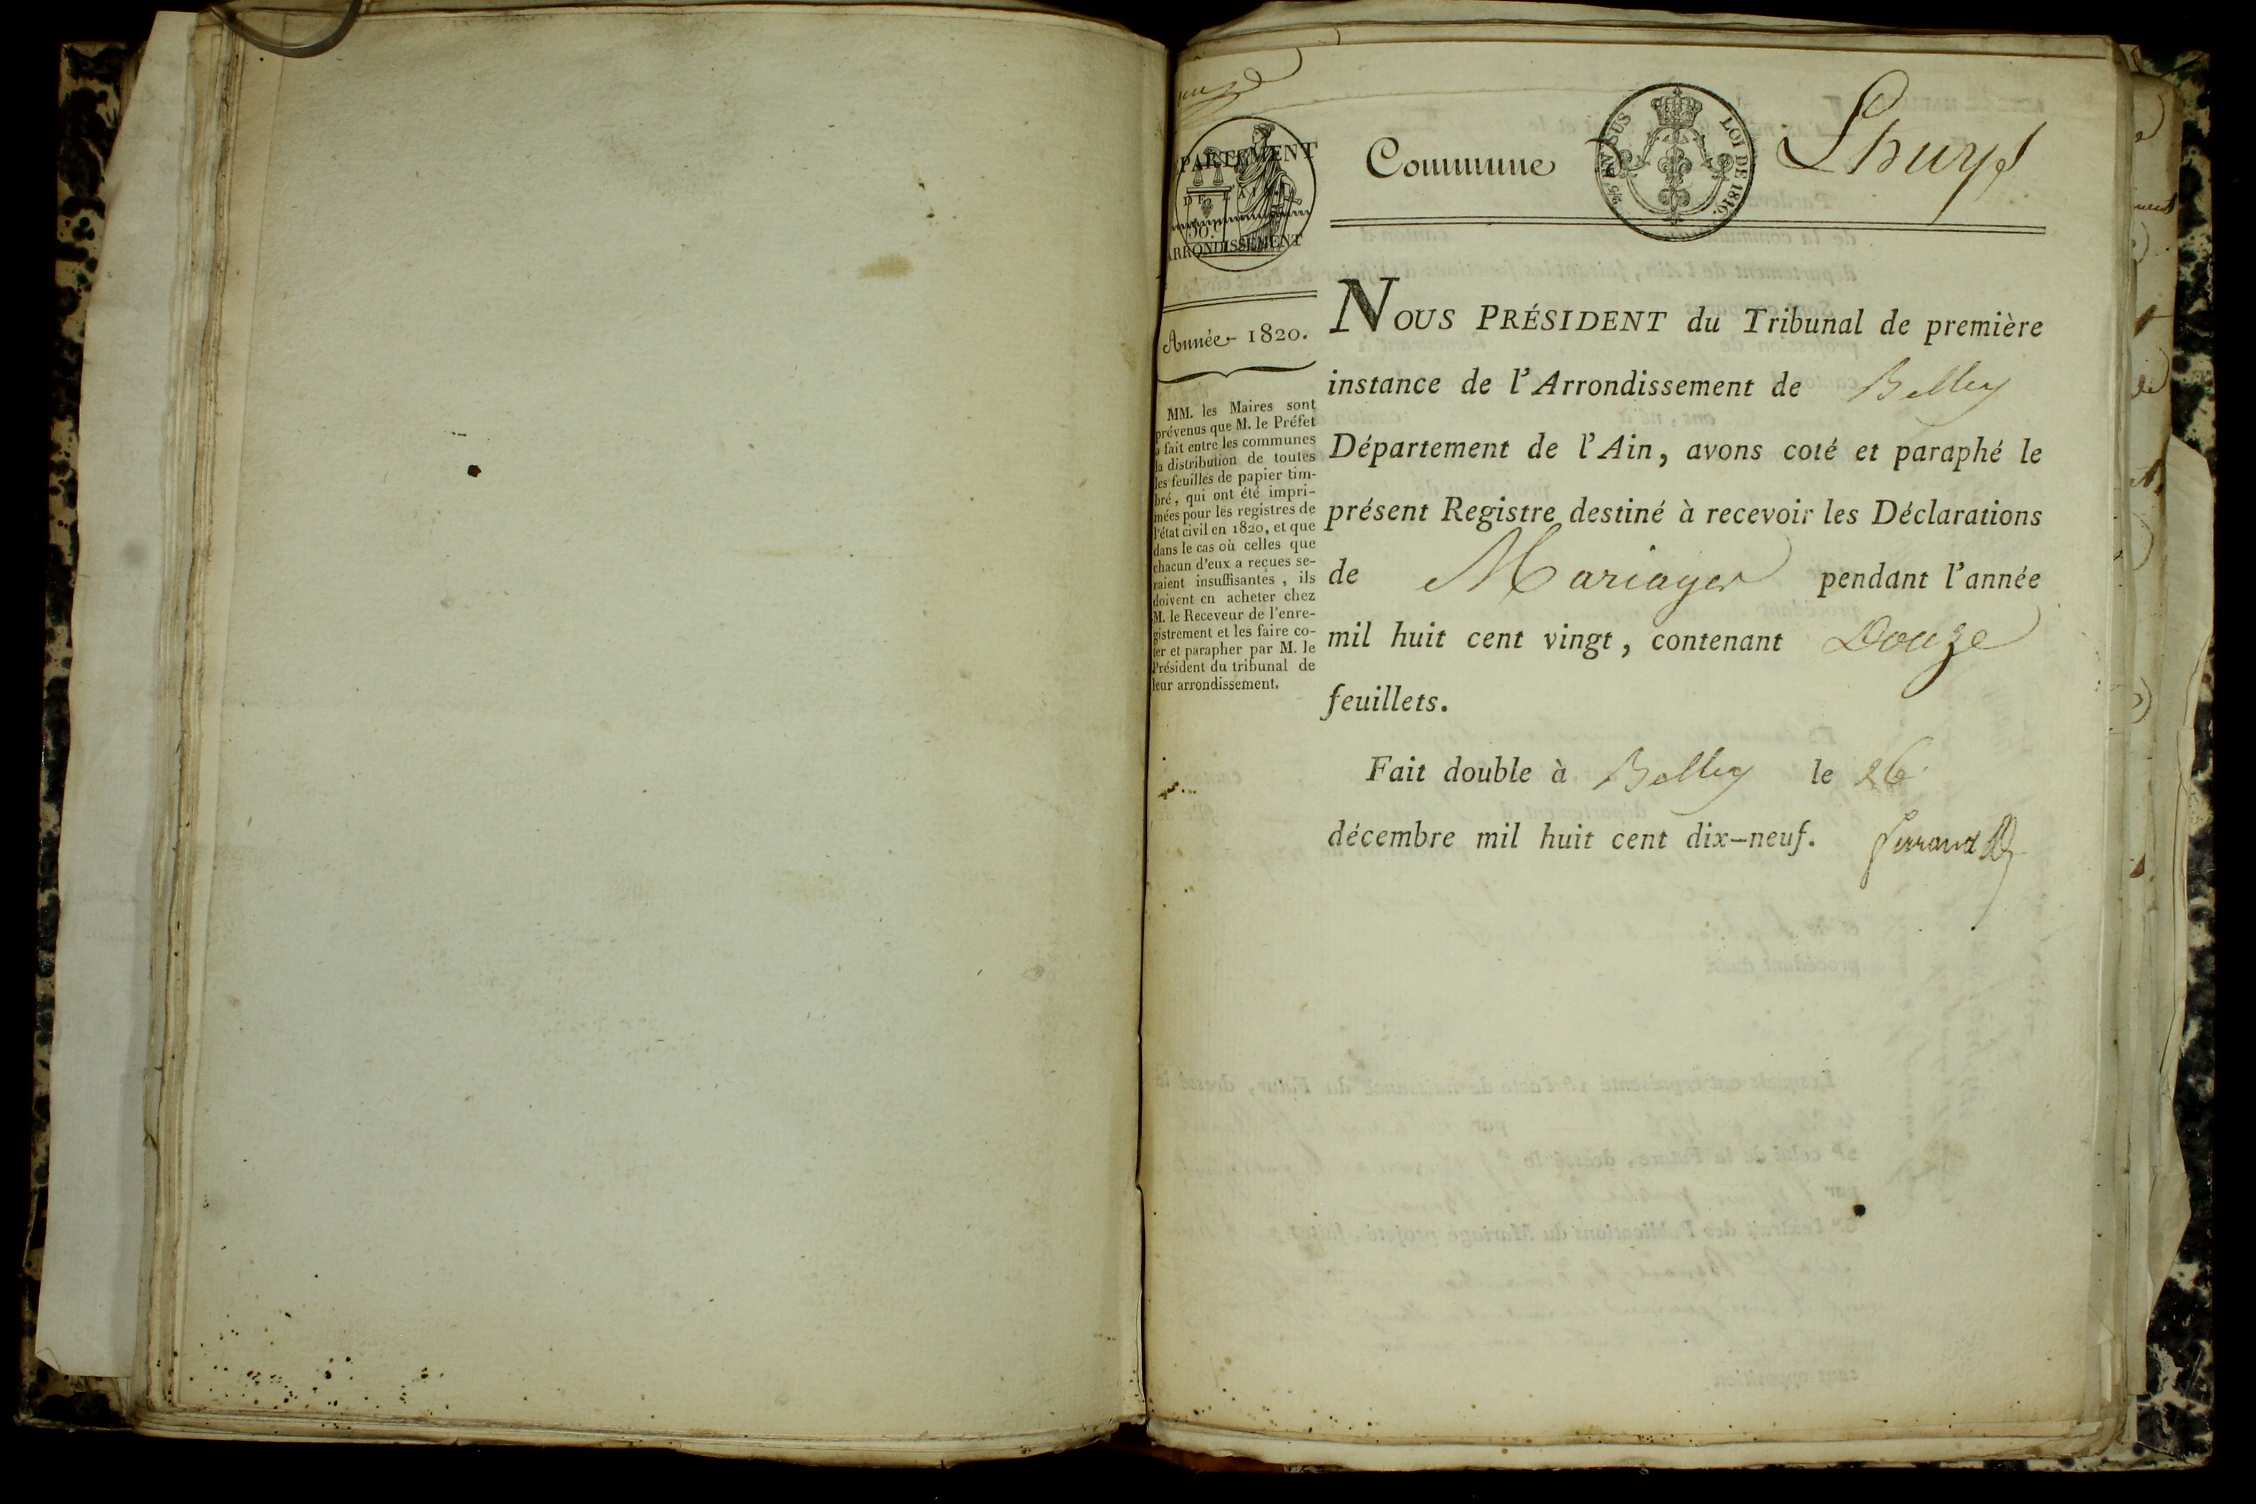 DÉPARTEMENT
DE L'AIN
50.
ARRONDISSEMENT
Année 1820.
MM. les Maires sont
prévenus que M. le Préfet
a fait entre les communes
la distribution de toutes
les feuilles de papier tim-
bré, qui ont été impri-
mées pour les registres de
l'état civil en 1820, et que
dans le cas où celles que
chacun d'eux a reçues se-
raient insuffisantes, ils
doivent en acheter chez
M. le Receveur de l'enre-
gistrement et les faire co-
ter et parapher par M. le
Président du tribunal de
leur arrondissement.
Commune Lhuys
AU SUS LOI DE 1816.
NOUS PRÉSIDENT du Tribunal de première
instance de l'Arrondissement de Belley
Département de l'Ain, avons coté et paraphé le
présent Registre destiné à recevoir les Déclarations
de Mariages pendant l'année
mil huit cent vingt, contenant Douze
feuillets.
Fait double à Belley le 26
décembre mil huit cent dix-neuf.